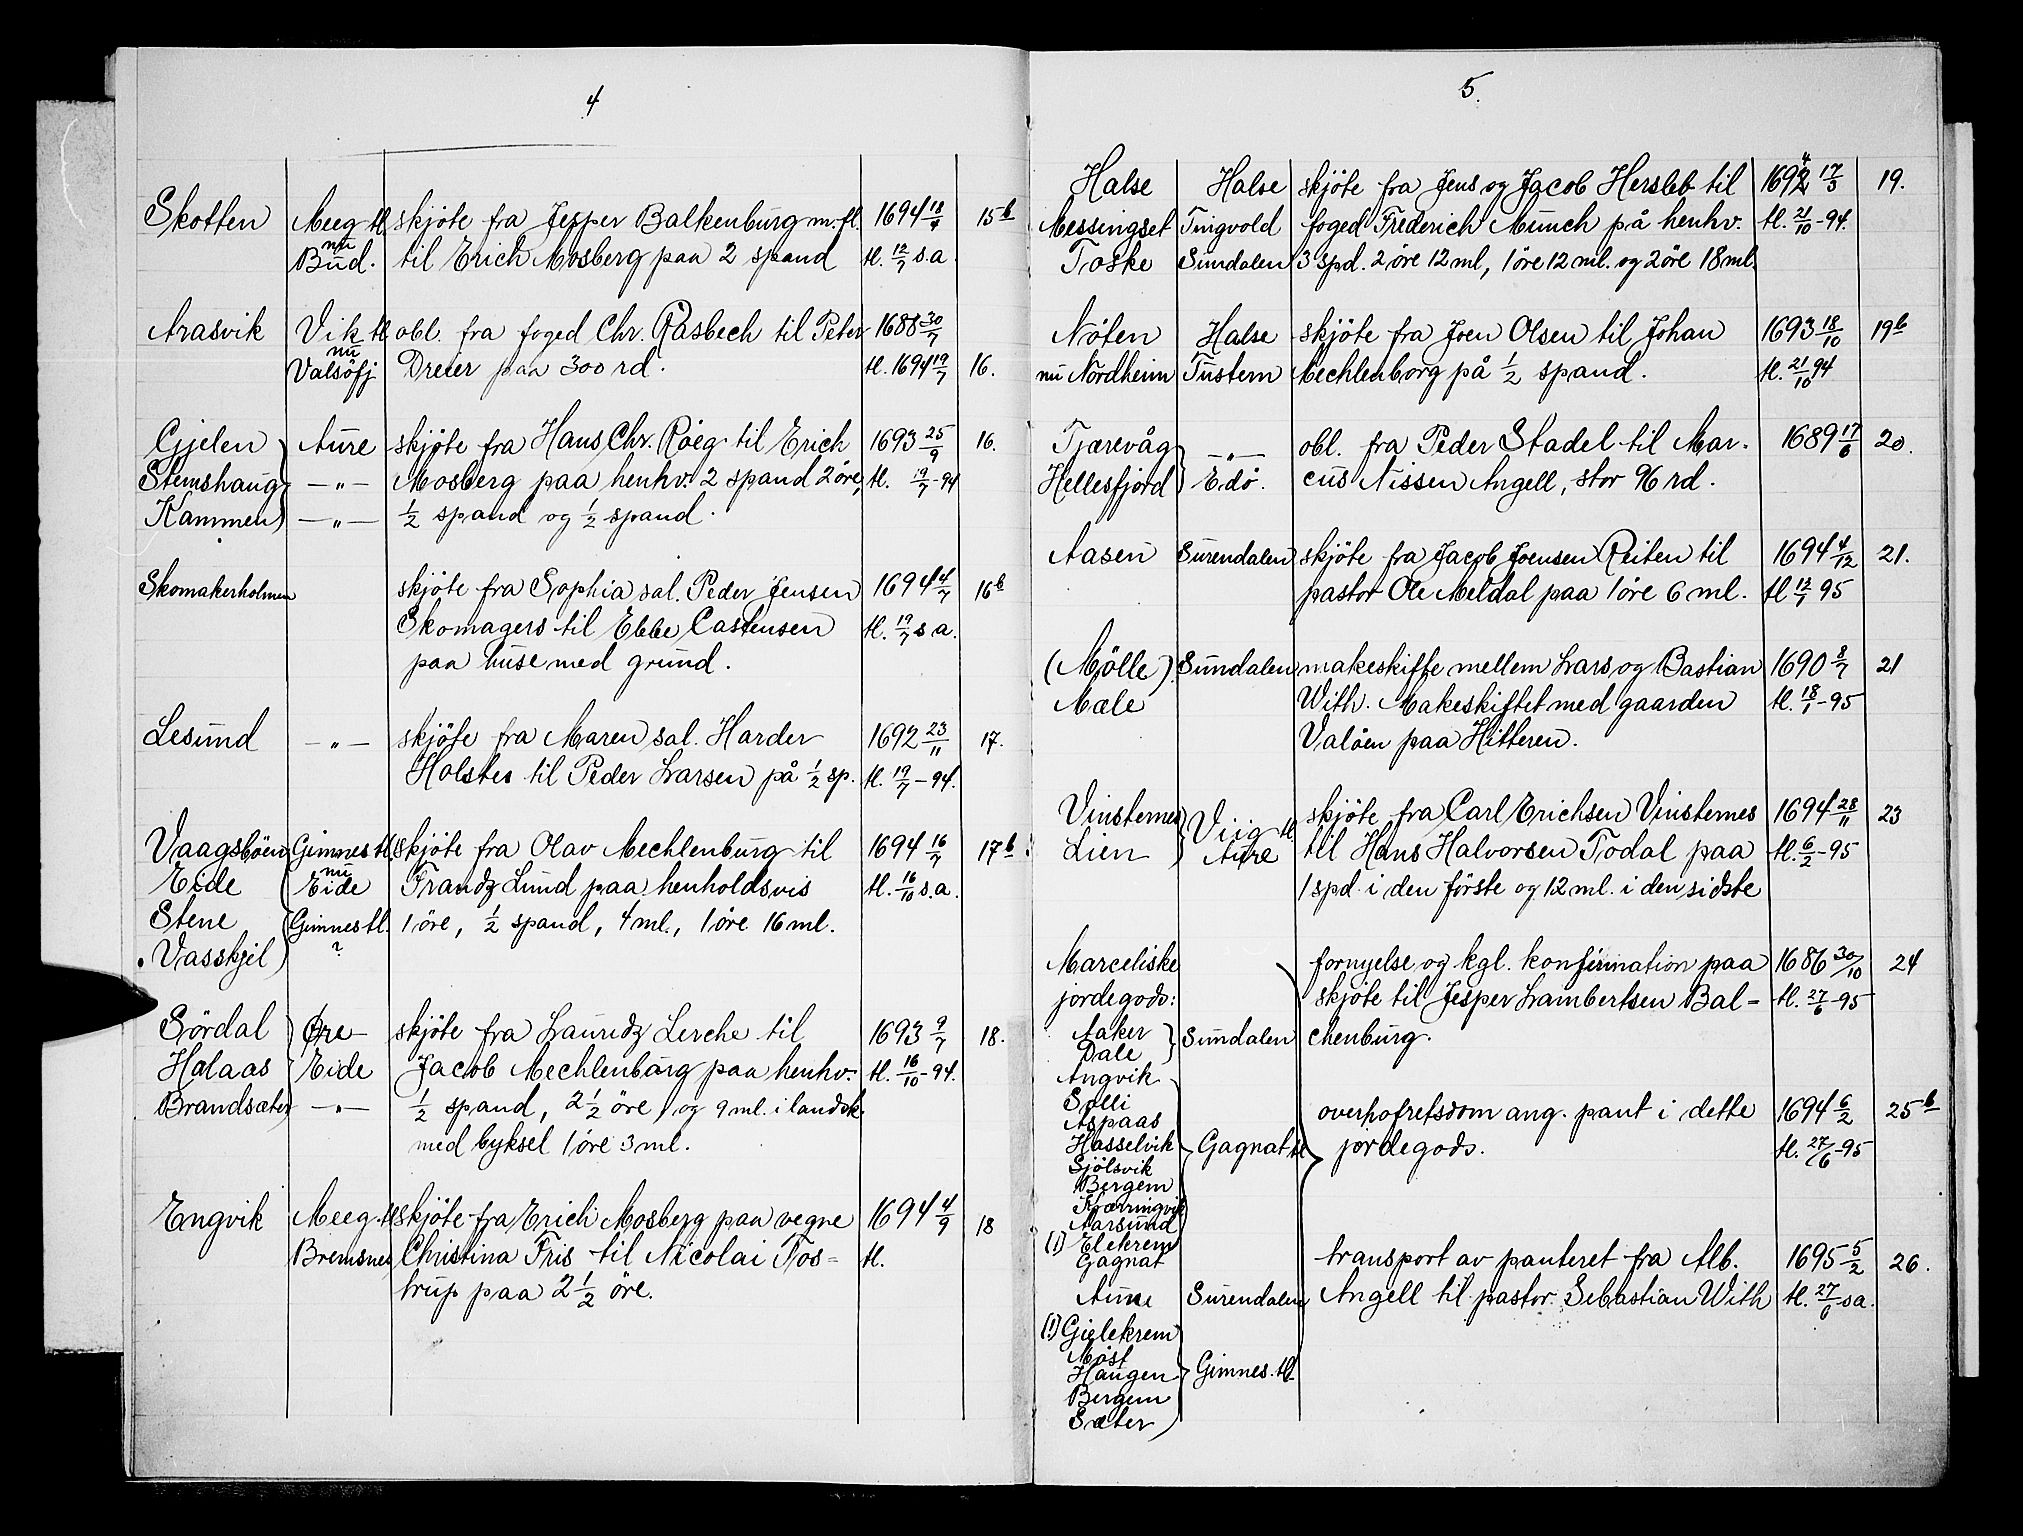 4
Skotten Meeg tl. skjöte fra Jesper Balkenburg m.fl. 1694 18/4 15b
nu
Bud. til Erich Mosberg paa 2 spand tl. 12/7 s.a.
Arasvik Vik tl. obl. fra foged Chr. Rasbech til Peter 1688 30/7
nu
Valsöfj Dreier paa 300 rd. tl. 1694 19/7 16.
Gjelen Aure skjöte fra Hans Chr. Röeg til Erich 1693 25/9 16.
Stemshaug —„— Mosberg paa henhv. 2 spand 2 öre, tl. 19/7-94
Kammen —„— 1/2 spand og 1/2 spand.
Skomakerholmen skjöte fra Sophia sal. Peder Jensen 1694 4/7 16b
Skomagers til Ebbe Castensen tl. 19/7 s.a.
paa huse med grund.
Lesund —„— skjöte fra Maren sal. Harder 1692 23/11 17.
Holstes til Peder Larsen på 1/2 sp. tl. 19/7-94.
Vaagsböen Gimnes tl. skjöte fra Olav Mechlenburg til 1694 16/7 17b.
nu
Eide Eide Frandz Lund paa henholdsvis tl. 16/10 s.a.
Stene Gimnes tl. 1 öre, 1/2 spand, 4 ml., 1 öre 16 ml.
. Vasskjel ?
Sördal Øre skjöte fra Lauridz Lerche til 1693 9/7 18.
Holaas Eide Jacob Mechlenburg paa henhv. tl. 16/10-94.
Brandsæter —„— 1/2 spand, 2 1/2 öre, og 9 ml. i landsk.
med byksel 1 öre 3 ml.
Engvik Meeg tl. skjöte fra Erich Mosberg paa vegne 1694 4/9 18
Bremsnes Christina Friis til Nicolai Tos= tl.
trup paa 2 1/2 öre.
5.
Halse Halse skjöte fra Jens og Jacob Hersleb til 1692 4 17/3 19.
Messingset Tingvold foged Frederich Munch på henhv. tl. 21/10-94.
Toske Sundalen 3 spd. 2 öre 12 ml, 1 öre 12 ml. og 2 öre 18 ml.
Nölen Halse skjöte fra Joen Olsen til Johan 1693 18/10 19b
nu Nordheim Tustern Mechlenborg på 1/2 spand. tl. 21/10 94
Tjærevåg —„— obl. fra Peder Stadel til Mar. 1689 17/6 20.
Hellesfjord Edö. cus Nissen Angell, stor 96 rd.
Aasen Surendalen skjöte fra Jacob Joensen Reiten til 1694 4/12 21.
pastor Ole Meldal paa 1 öre 6 ml. tl 12/1 95
(Mölle) Sundalen makeskifte mellem Lars og Bastian 1690 8/7 21
Mæle With. Makeskiftet med gaarden tl. 18/1-95
Valöen paa Hitteren.
Vinsternes Viig tl. skjöte fra Carl Erichsen Vinsternes 1694 28/11 23
Lien Aure til Hans Halvorsen Todal paa tl. 6/2-95
1 spd. i den förste og 12 ml. i den sidste
Marceliske fornyelse og kgl. konfirmation paa 1686 30/10 24
jordegods: skjöte til Jesper Lambertsen Bal- tl. 27/6-95
Aaker Sundalen chenburg.
Dale
Angvik
Solli
Aspaas overhofretsdom ang. pant i dette 1694 6/2 25b
Hasselvik Gagnat tl jordegods. tl. 27/6-95
Sjölsvik
Bergem
Kværringvik
Aarsund
(!) Elekrem transport av panteret fra Alb. 1695 5/2 26.
Gagnat
Aune Surendalen Angell til pastor Sebastian With tl. 27/6 s a.
(!) Gielekrem
Möst
Haugen Gimnes tl.
Bergem
Sæter